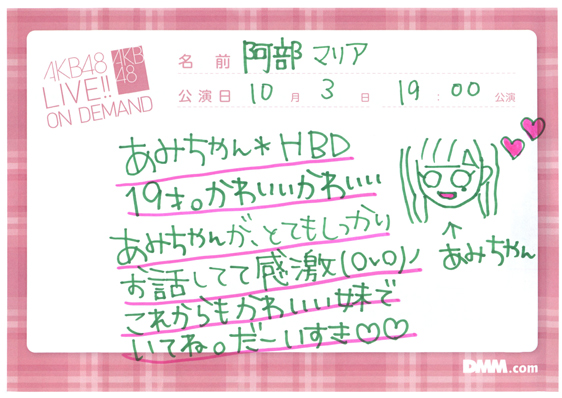 AKB48
LIVE!!
ON DEMAND
AKB
48
名前 阿部 マリア
公演日 10月 3日 19:00公演
あみちゃん*HBD
19才。かわいいかわいい
あみちゃんが、とてもしっかり
お話してて感激(OvO)ノ
これからもかわいい妹で
いてね。だーいすき♡♡
↑
あみちゃん
DMM.com